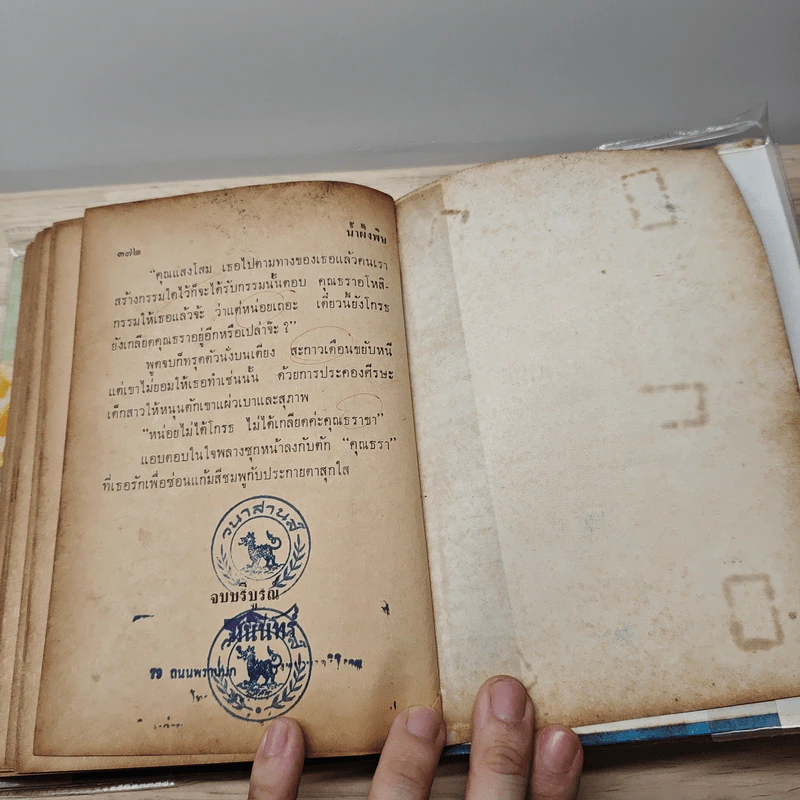 ๓๗๒
น้ำผึ้งพิษ
"คุณแสงโสม เธอไปตามทางของเธอแล้วคนเรา
สร้างกรรมใดไว้ก็จะได้รับกรรมนั้นตอบ คุณธราอโหสิ-
กรรมให้เธอแล้วจ้ะ ว่าแต่หน่อยเถอะ เดี๋ยวนี้ยังโกรธ
ยังเกลียดคุณธราอยู่อีกหรือเปล่าจ๊ะ ?"
พูดจบก็ทรุดตัวนั่งบนเตียง สะกาวเดือนขยับหนี
แต่เขาไม่ยอมให้เธอทำเช่นนั้น ด้วยการประคองศีรษะ
เด็กสาวให้หนุนตักเขาแผ่วเบาและสุภาพ
"หน่อยไม่ได้โกรธ ไม่ได้เกลียดค่ะคุณธราขา"
แอบตอบในใจพลางซุกหน้าลงกับตัก "คุณธรา"
ที่เธอรักเพื่อซ่อนแก้มสีชมพูกับประกายตาสุกใส
วนาสานส์
จบบริบูรณ์
๖๖ ถนนพระ